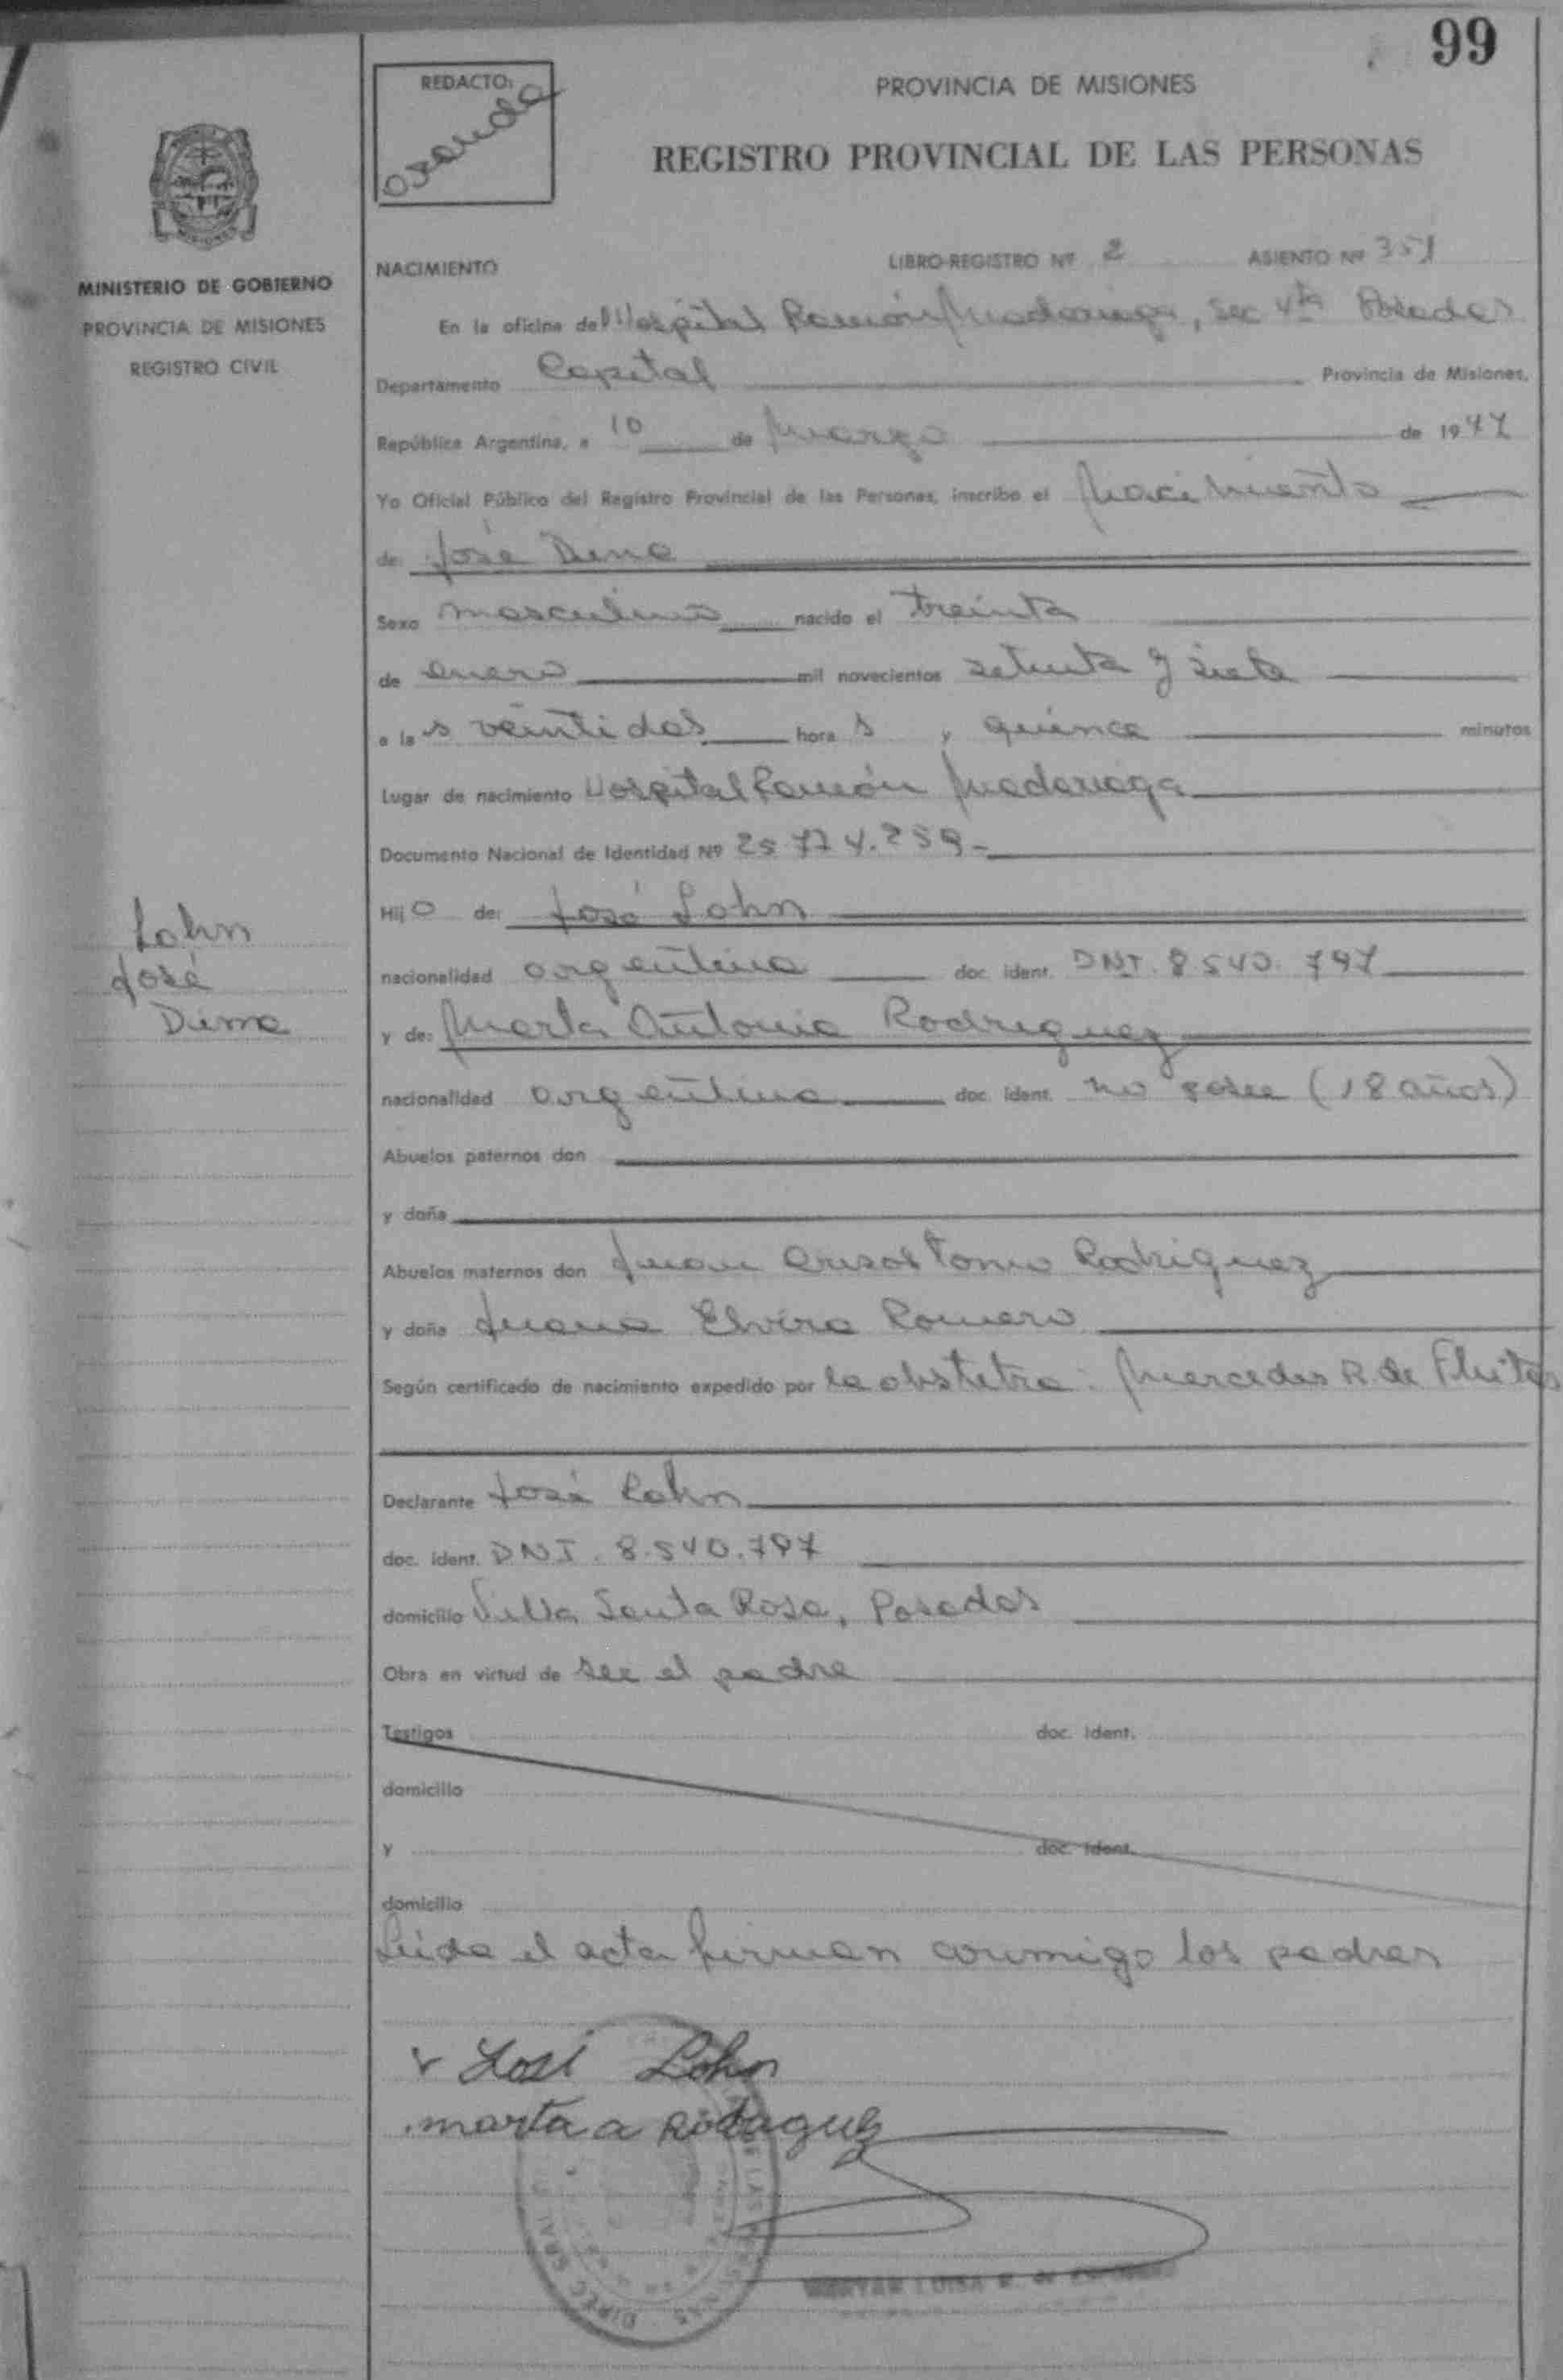 99
REDACTO:
PROVINCIA DE MISIONES
REGISTRO PROVINCIAL DE LAS PERSONAS
MINISTERIO DE GOBIERNO
PROVINCIA DE MISIONES
REGISTRO CIVIL
NACIMIENTO LIBRO-REGISTRO Nº 2 ASIENTO Nº 351
En la oficina del Hospital Ramón Madariaga, Sec 4ta Posadas
Departamento Capital Provincia de Misiones,
República Argentina, a 10 de Marzo de 1977
Yo Oficial Público del Registro Provincial de las Personas, inscribo el Nacimiento
de: José
Sexo masculino nacido el treinta
de enero mil novecientos setenta y siete
a las veintidos horas y quince minutos
Lugar de nacimiento Hospital Ramón Madariaga
Documento Nacional de Identidad Nº 25.774.259-
Hijo de: José Lohn
nacionalidad argentina doc. ident. DNI. 8.540.797
y de: Marta Antonia Rodriguez
nacionalidad argentina doc. ident. no posee (18 años)
Abuelos paternos don
y doña
Abuelos maternos don Juan Crisostomo Rodriguez
y doña Juana Elvira Romero
Según certificado de nacimiento expedido por la obstetra: Mercedes R. de Fleitas
Declarante José Lohn
doc. ident. DNI. 8.540.797
domicilio Villa Santa Rosa, Posadas
Obra en virtud de ser el padre
Testigos doc. ident.
domicilio
y doc. ident.
domicilio
Leida el acta firman conmigo los padres
José Lohn
marta a Rodriguez
Lohn
José